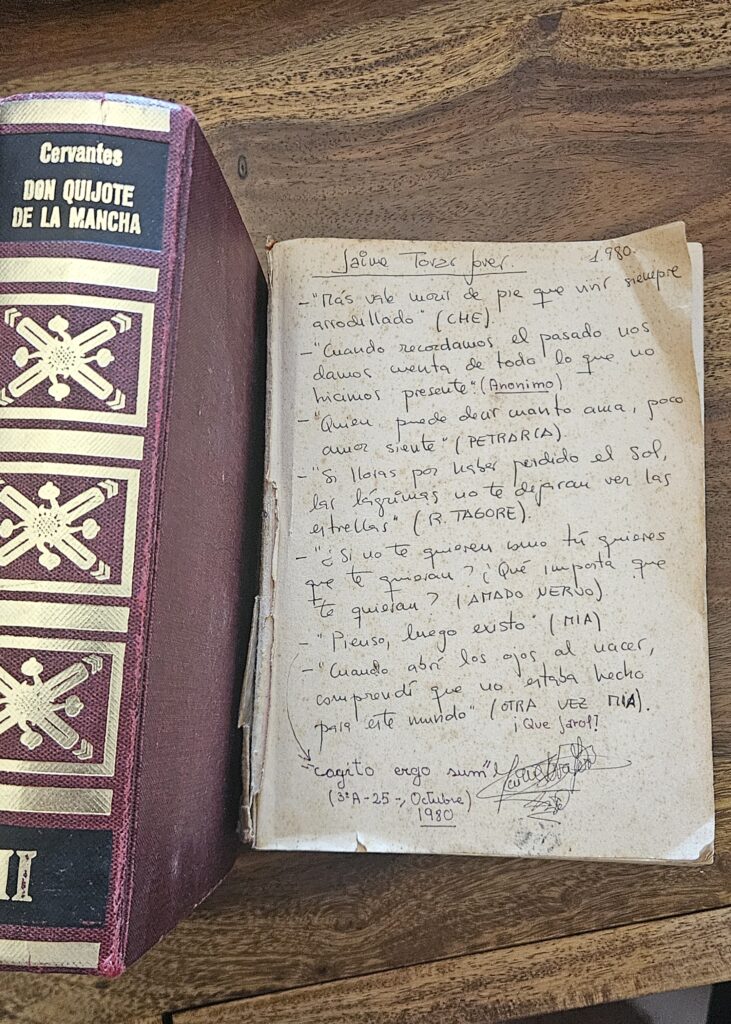 Cervantes
DON QUIJOTE
DE LA MANCHA
II
Jaime Tovar Jover
1980.
- "Más vale morir de pie que vivir siempre
arrodillado" (CHE).
- "Cuando recordamos el pasado nos
damos cuenta de todo lo que no
hicimos presente". (Anonimo)
- "Quien puede decir cuanto ama, poco
amor siente" (PETRARCA).
- "Si lloras por haber perdido el sol,
las lágrimas no te dejaran ver las
estrellas" (R. TAGORE).
- "¿Si no te quieren como tú quieres
que te quieran? ¿Qué importa que
te quieran? (AMADO NERVO)
- "Pienso, luego existo" (MIA)
- "Cuando abrí los ojos al nacer,
comprendí que no estaba hecho
para este mundo" (OTRA VEZ MIA).
¡Que farol!
"cogito ergo sum"
(3ºA-25-, Octubre)
1980